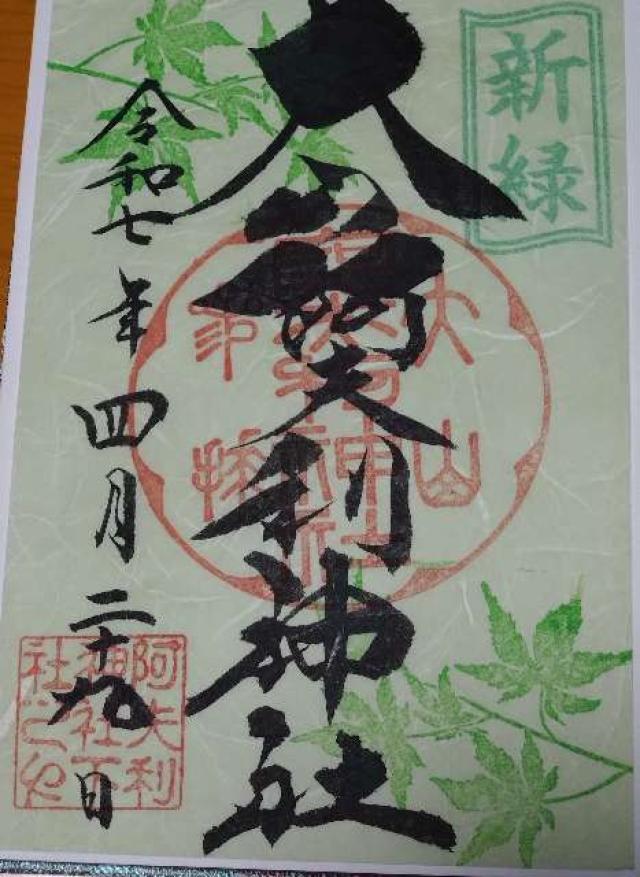 新緑
大山阿夫利神社
令和七年四月二十九日
大山
阿夫利神社
阿夫利
神社下
社之印